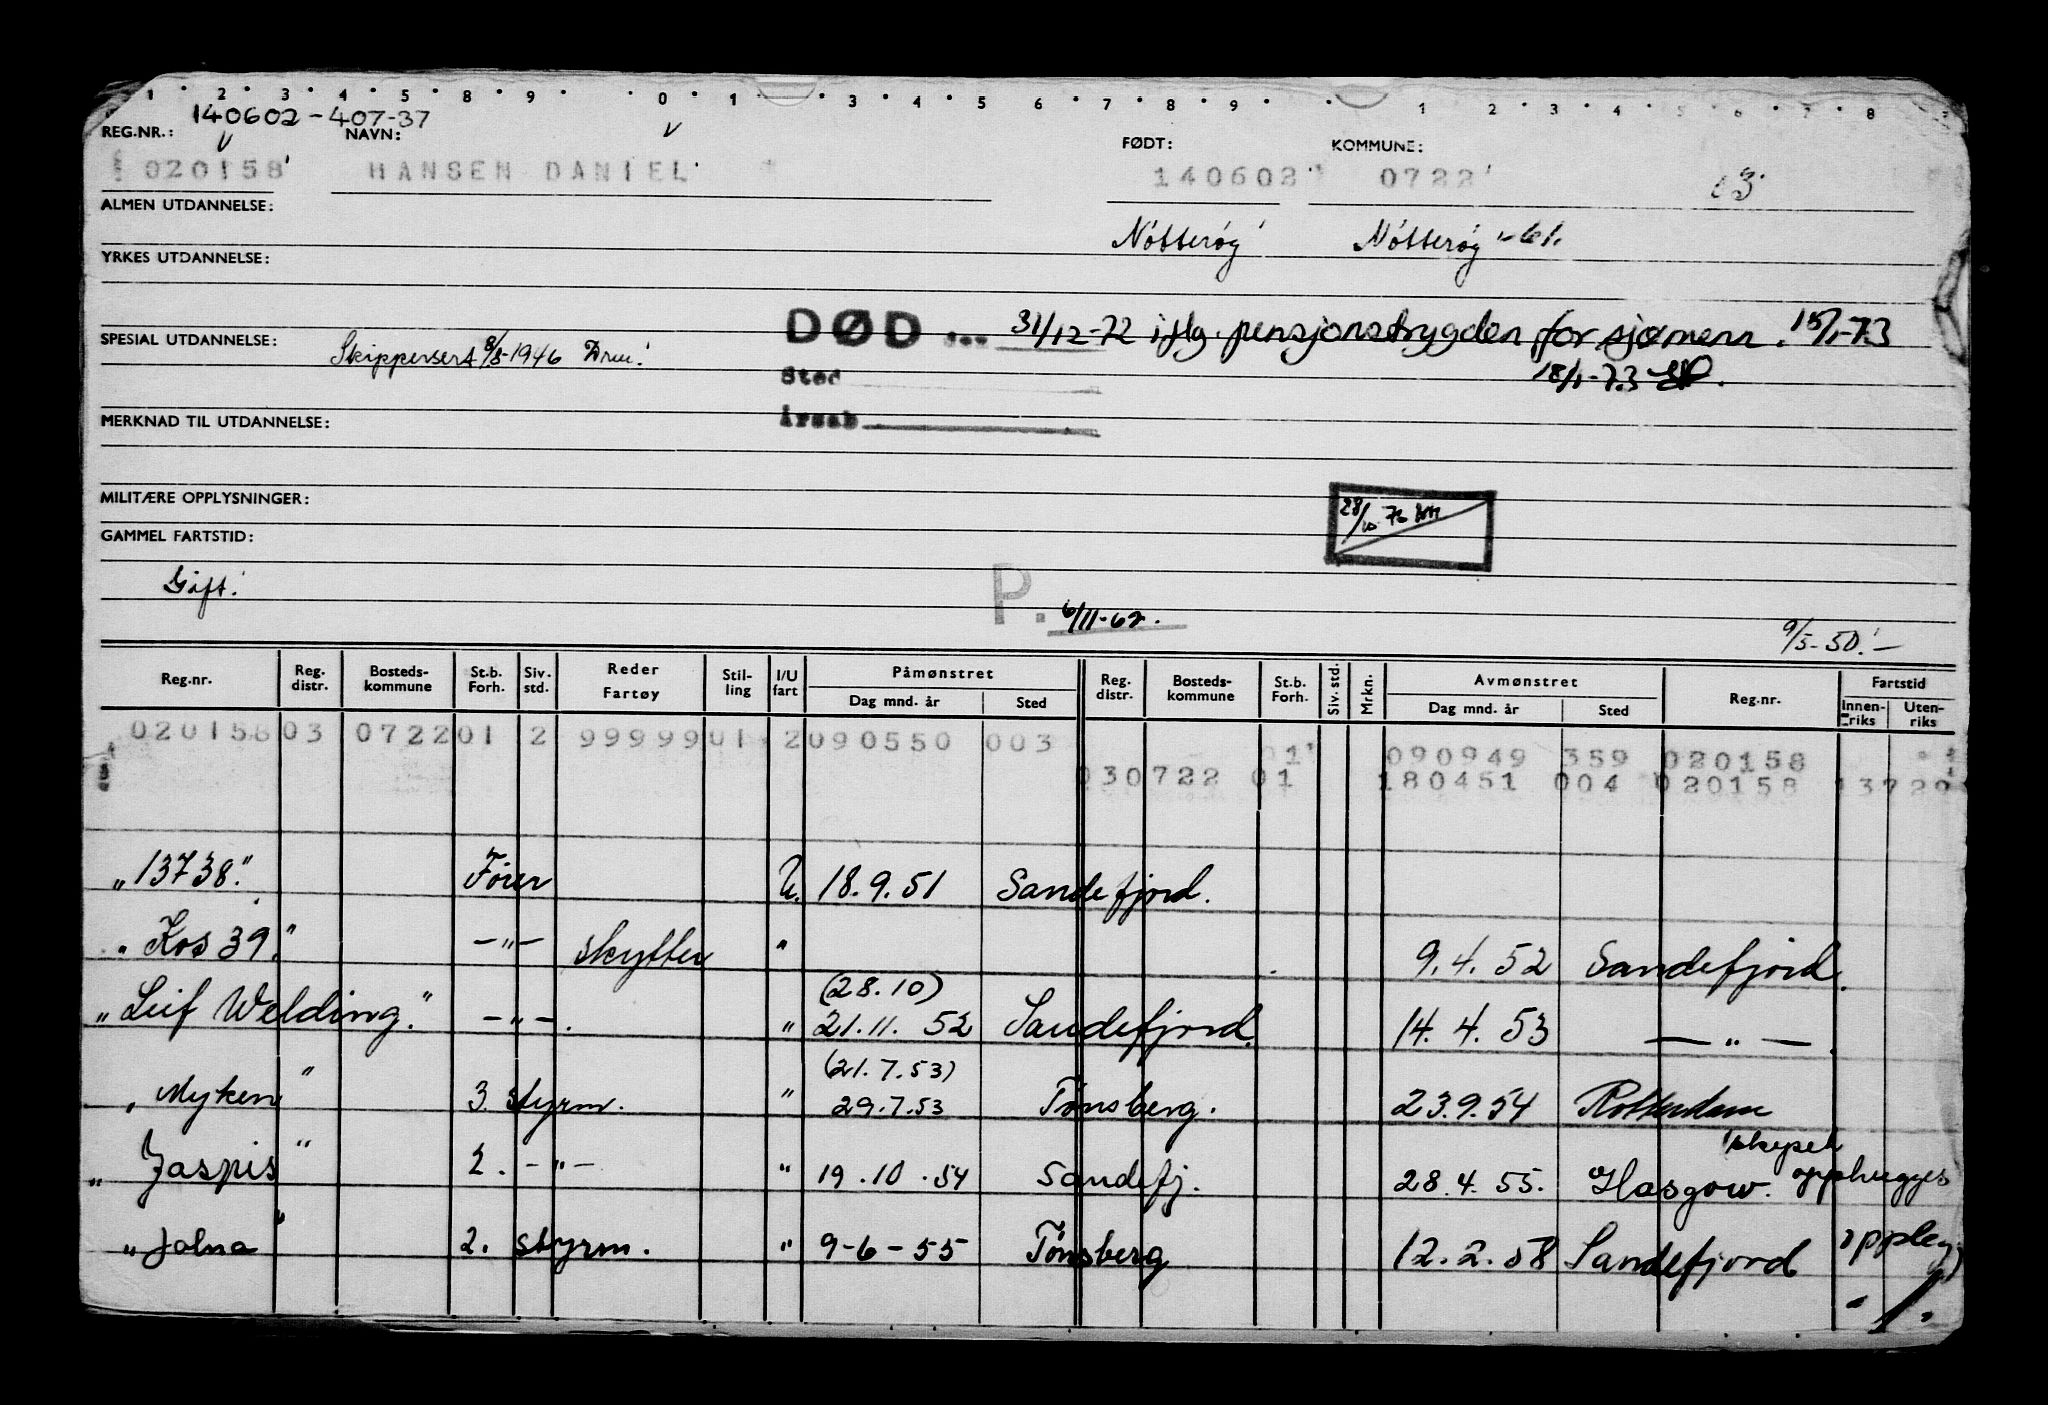 1 2 3 4 5 8 9 0 1 3 4 5 6 7 8 9 1 2 3 4 5 6 7 8
140602-407-37
REG.NR.: NAVN: FØDT: KOMMUNE:
020158 HANSEN DANIEL 140602 0722 3
ALMEN UTDANNELSE:
Nøtterøy Nøtterøy -61.
YRKES UTDANNELSE:
DØD... 31/12-72 iflg. pensjonstrygden for sjømenn. 15/1-73
SPESIAL UTDANNELSE: Skippersert 8/8-1946 Drm.
18/1-73
Sted
Årsak
MERKNAD TIL UTDANNELSE:
MILITÆRE OPPLYSNINGER:
28/10 72
GAMMEL FARTSTID:
Gift.
P. 6/11-62.
9/5-50.-
Reg.nr. Reg. distr. Bosteds-kommune St.b. Forh. Siv. std. Reder Fartøy Stil-ling I/U fart Påmønstret Dag mnd. år Sted Reg. distr. Bosteds-kommune St.b. Forh. Siv. std. Mrkn. Avmønstret Dag mnd. år Sted Reg.nr. Fartstid Innen-riks Uten-riks
020158 03 0722 01 2 99999 01 2 090550 003
1 090949 359 020158
030722 01 180451 004 020158 13729
"13738" Fører U. 18.9.51 Sandefjord.
"Kos 39." -"- skytter " 9.4.52 Sandefjord.
(28.10)
"Leif Welding." -"-. " 21.11.52 Sandefjord. 14.4.53 -"-.
(21.7.53)
"Myken" 3 styrm. " 29.7.53 Tønsberg. 23.9.54 Rotterdam
skipet
"Jaspis" 2. -"- " 19.10.54 Sandefj. 28.4.55. Glasgow. opphugges
"Jalna" 2. styrm. " 9-6-55 Tønsberg 12.2.58 Sandefjord opplegg